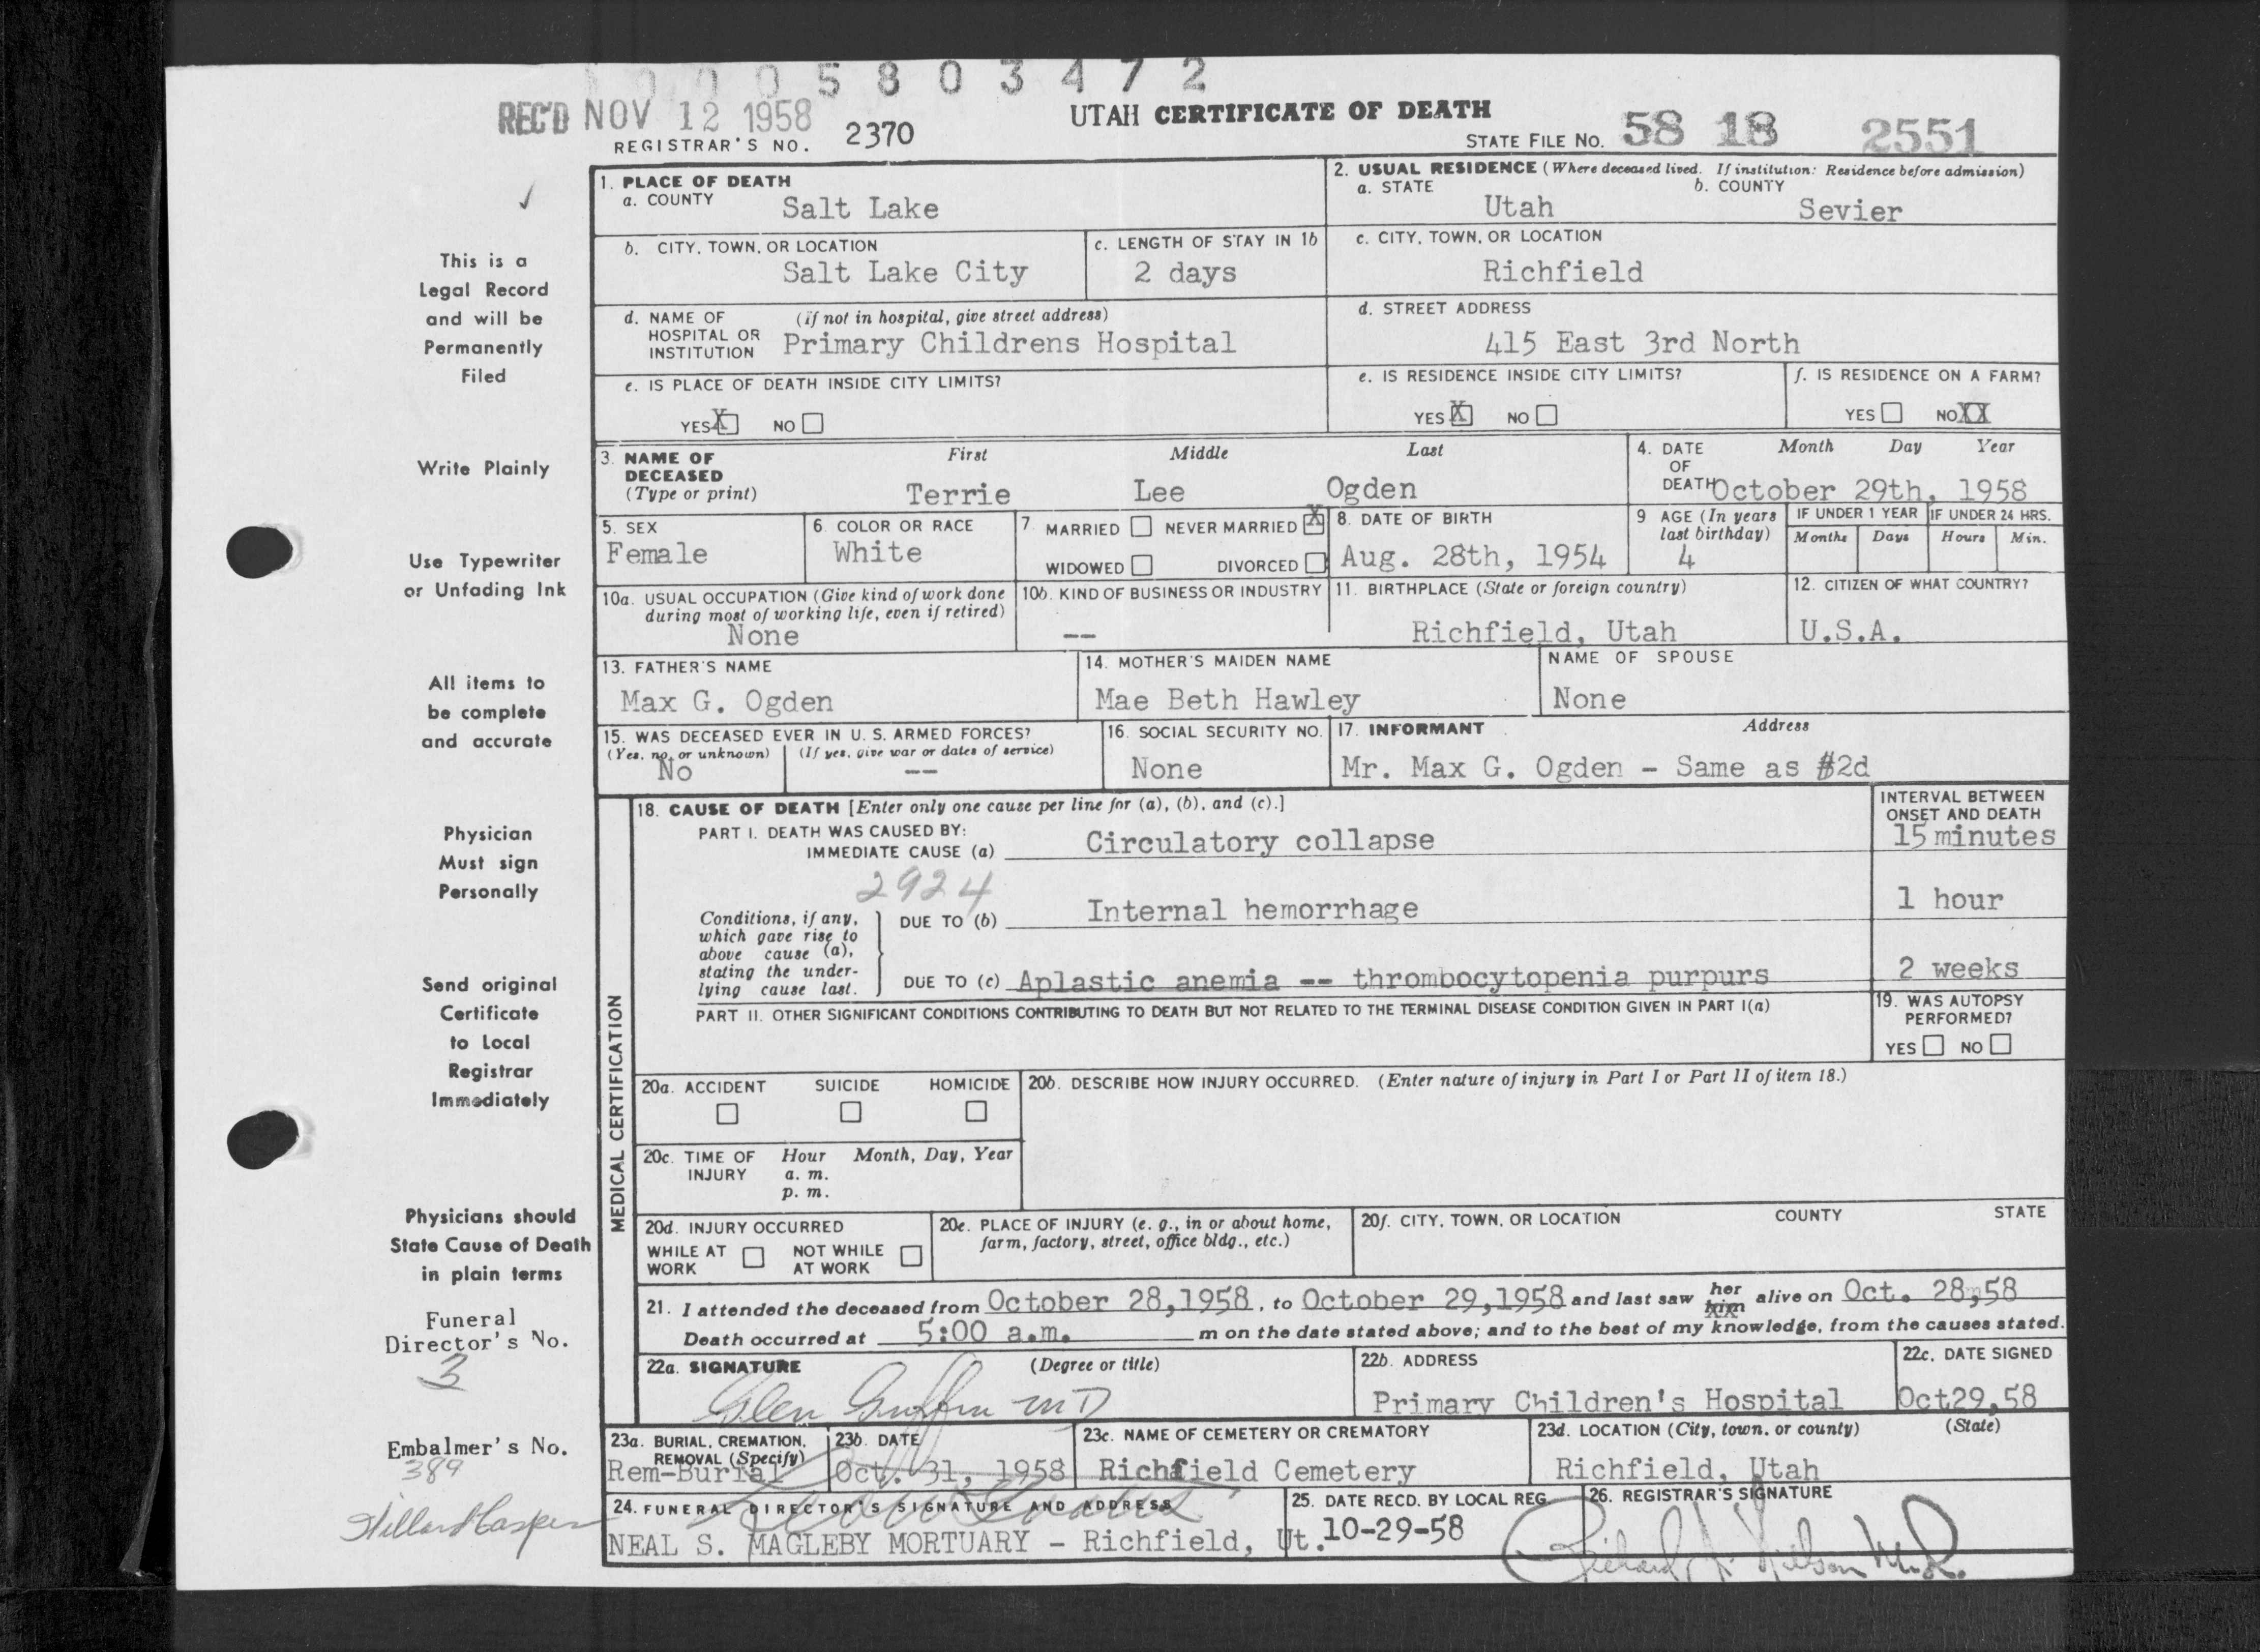 0 0 0 5 8 0 3 4 7 2
REC'D NOV 12 1958
REGISTRAR'S NO. 2370
UTAH CERTIFICATE OF DEATH
STATE FILE NO. 58 18 2551
This is a
Legal Record
and will be
Permanently
Filed
Write Plainly
Use Typewriter
or Unfading Ink
All items to
be complete
and accurate
Physician
Must sign
Personally
Send original
Certificate
to Local
Registrar
Immediately
Physicians should
State Cause of Death
in plain terms
Funeral
Director's No.
3
Embalmer's No.
389
1. PLACE OF DEATH
a. COUNTY Salt Lake
2. USUAL RESIDENCE (Where deceased lived. If institution: Residence before admission)
a. STATE Utah b. COUNTY Sevier
b. CITY, TOWN, OR LOCATION Salt Lake City
c. LENGTH OF STAY IN 1b 2 days
c. CITY, TOWN, OR LOCATION Richfield
d. NAME OF HOSPITAL OR INSTITUTION (if not in hospital, give street address) Primary Childrens Hospital
d. STREET ADDRESS 415 East 3rd North
e. IS PLACE OF DEATH INSIDE CITY LIMITS?
YES X NO
e. IS RESIDENCE INSIDE CITY LIMITS?
YES X NO
f. IS RESIDENCE ON A FARM?
YES NO XX
3. NAME OF DECEASED (Type or print)
First Middle Last
Terrie Lee Ogden
4. DATE OF DEATH Month Day Year
October 29th, 1958
5. SEX Female
6. COLOR OR RACE White
7. MARRIED NEVER MARRIED X
WIDOWED DIVORCED
8. DATE OF BIRTH Aug. 28th, 1954
9 AGE (In years last birthday) 4
IF UNDER 1 YEAR Months Days
IF UNDER 24 HRS. Hours Min.
10a. USUAL OCCUPATION (Give kind of work done during most of working life, even if retired) None
10b. KIND OF BUSINESS OR INDUSTRY --
11. BIRTHPLACE (State or foreign country) Richfield, Utah
12. CITIZEN OF WHAT COUNTRY? U.S.A.
13. FATHER'S NAME Max G. Ogden
14. MOTHER'S MAIDEN NAME Mae Beth Hawley
NAME OF SPOUSE None
15. WAS DECEASED EVER IN U. S. ARMED FORCES?
(Yes, no, or unknown) (If yes, give war or dates of service)
No --
16. SOCIAL SECURITY NO. None
17. INFORMANT Address
Mr. Max G. Ogden - Same as #2d
MEDICAL CERTIFICATION
18. CAUSE OF DEATH [Enter only one cause per line for (a), (b), and (c).]
INTERVAL BETWEEN ONSET AND DEATH
PART I. DEATH WAS CAUSED BY:
IMMEDIATE CAUSE (a) Circulatory collapse 15 minutes
2924
Conditions, if any, which gave rise to above cause (a), stating the underlying cause last.
DUE TO (b) Internal hemorrhage 1 hour
DUE TO (c) Aplastic anemia -- thrombocytopenia purpurs 2 weeks
PART II. OTHER SIGNIFICANT CONDITIONS CONTRIBUTING TO DEATH BUT NOT RELATED TO THE TERMINAL DISEASE CONDITION GIVEN IN PART I(a)
19. WAS AUTOPSY PERFORMED?
YES NO
20a. ACCIDENT SUICIDE HOMICIDE
20b. DESCRIBE HOW INJURY OCCURRED. (Enter nature of injury in Part I or Part II of item 18.)
20c. TIME OF INJURY Hour Month, Day, Year
a. m.
p. m.
20d. INJURY OCCURRED
WHILE AT WORK NOT WHILE AT WORK
20e. PLACE OF INJURY (e. g., in or about home, farm, factory, street, office bldg., etc.)
20f. CITY, TOWN, OR LOCATION COUNTY STATE
21. I attended the deceased from October 28,1958, to October 29,1958 and last saw her him alive on Oct. 28,58
Death occurred at 5:00 a.m. m on the date stated above; and to the best of my knowledge, from the causes stated.
22a. SIGNATURE (Degree or title)
Glen Griffin MD
22b. ADDRESS Primary Children's Hospital
22c. DATE SIGNED Oct29,58
23a. BURIAL, CREMATION, REMOVAL (Specify) Rem-Burial
23b. DATE Oct. 31, 1958
23c. NAME OF CEMETERY OR CREMATORY Richfield Cemetery
23d. LOCATION (City, town, or county) (State)
Richfield, Utah
24. FUNERAL DIRECTOR'S SIGNATURE AND ADDRESS
NEAL S. MAGLEBY MORTUARY - Richfield, Ut.
25. DATE RECD. BY LOCAL REG. 10-29-58
26. REGISTRAR'S SIGNATURE